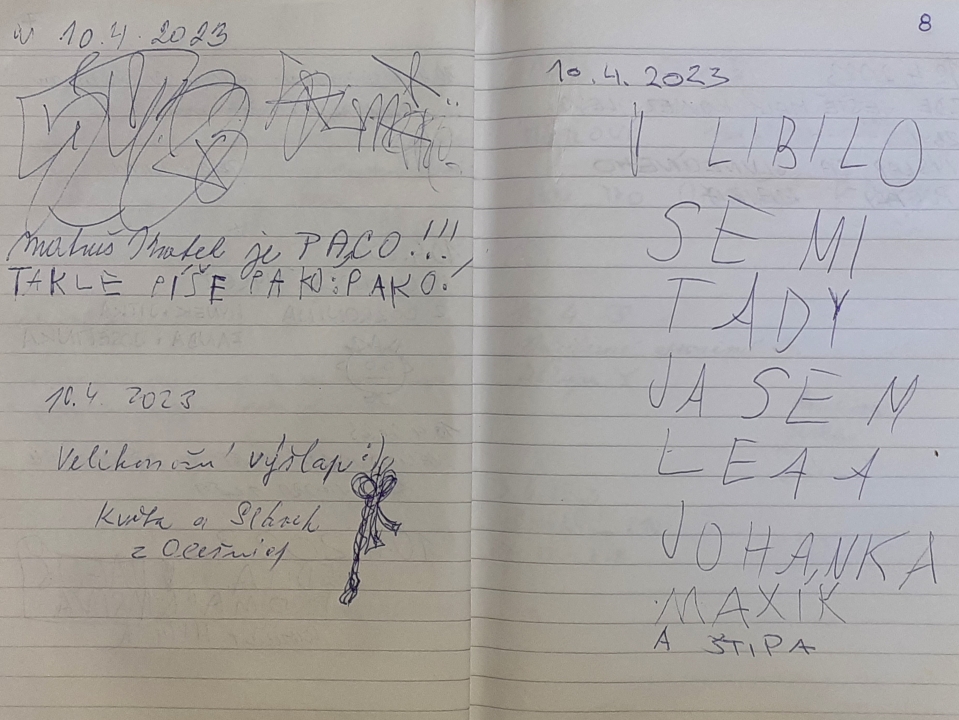 10.4.2023
Matuš je PACO!!!
TAKLE PÍŠE PAKO:PAKO!
10.4. 2023
Velikonoční výšlap:
Květa a
z Olešnice
8
10.4.2023
V LIBILO
SE MI
TADY
JA SEM
LEA A
JOHANKA
MAXIK
A ŠTIPA